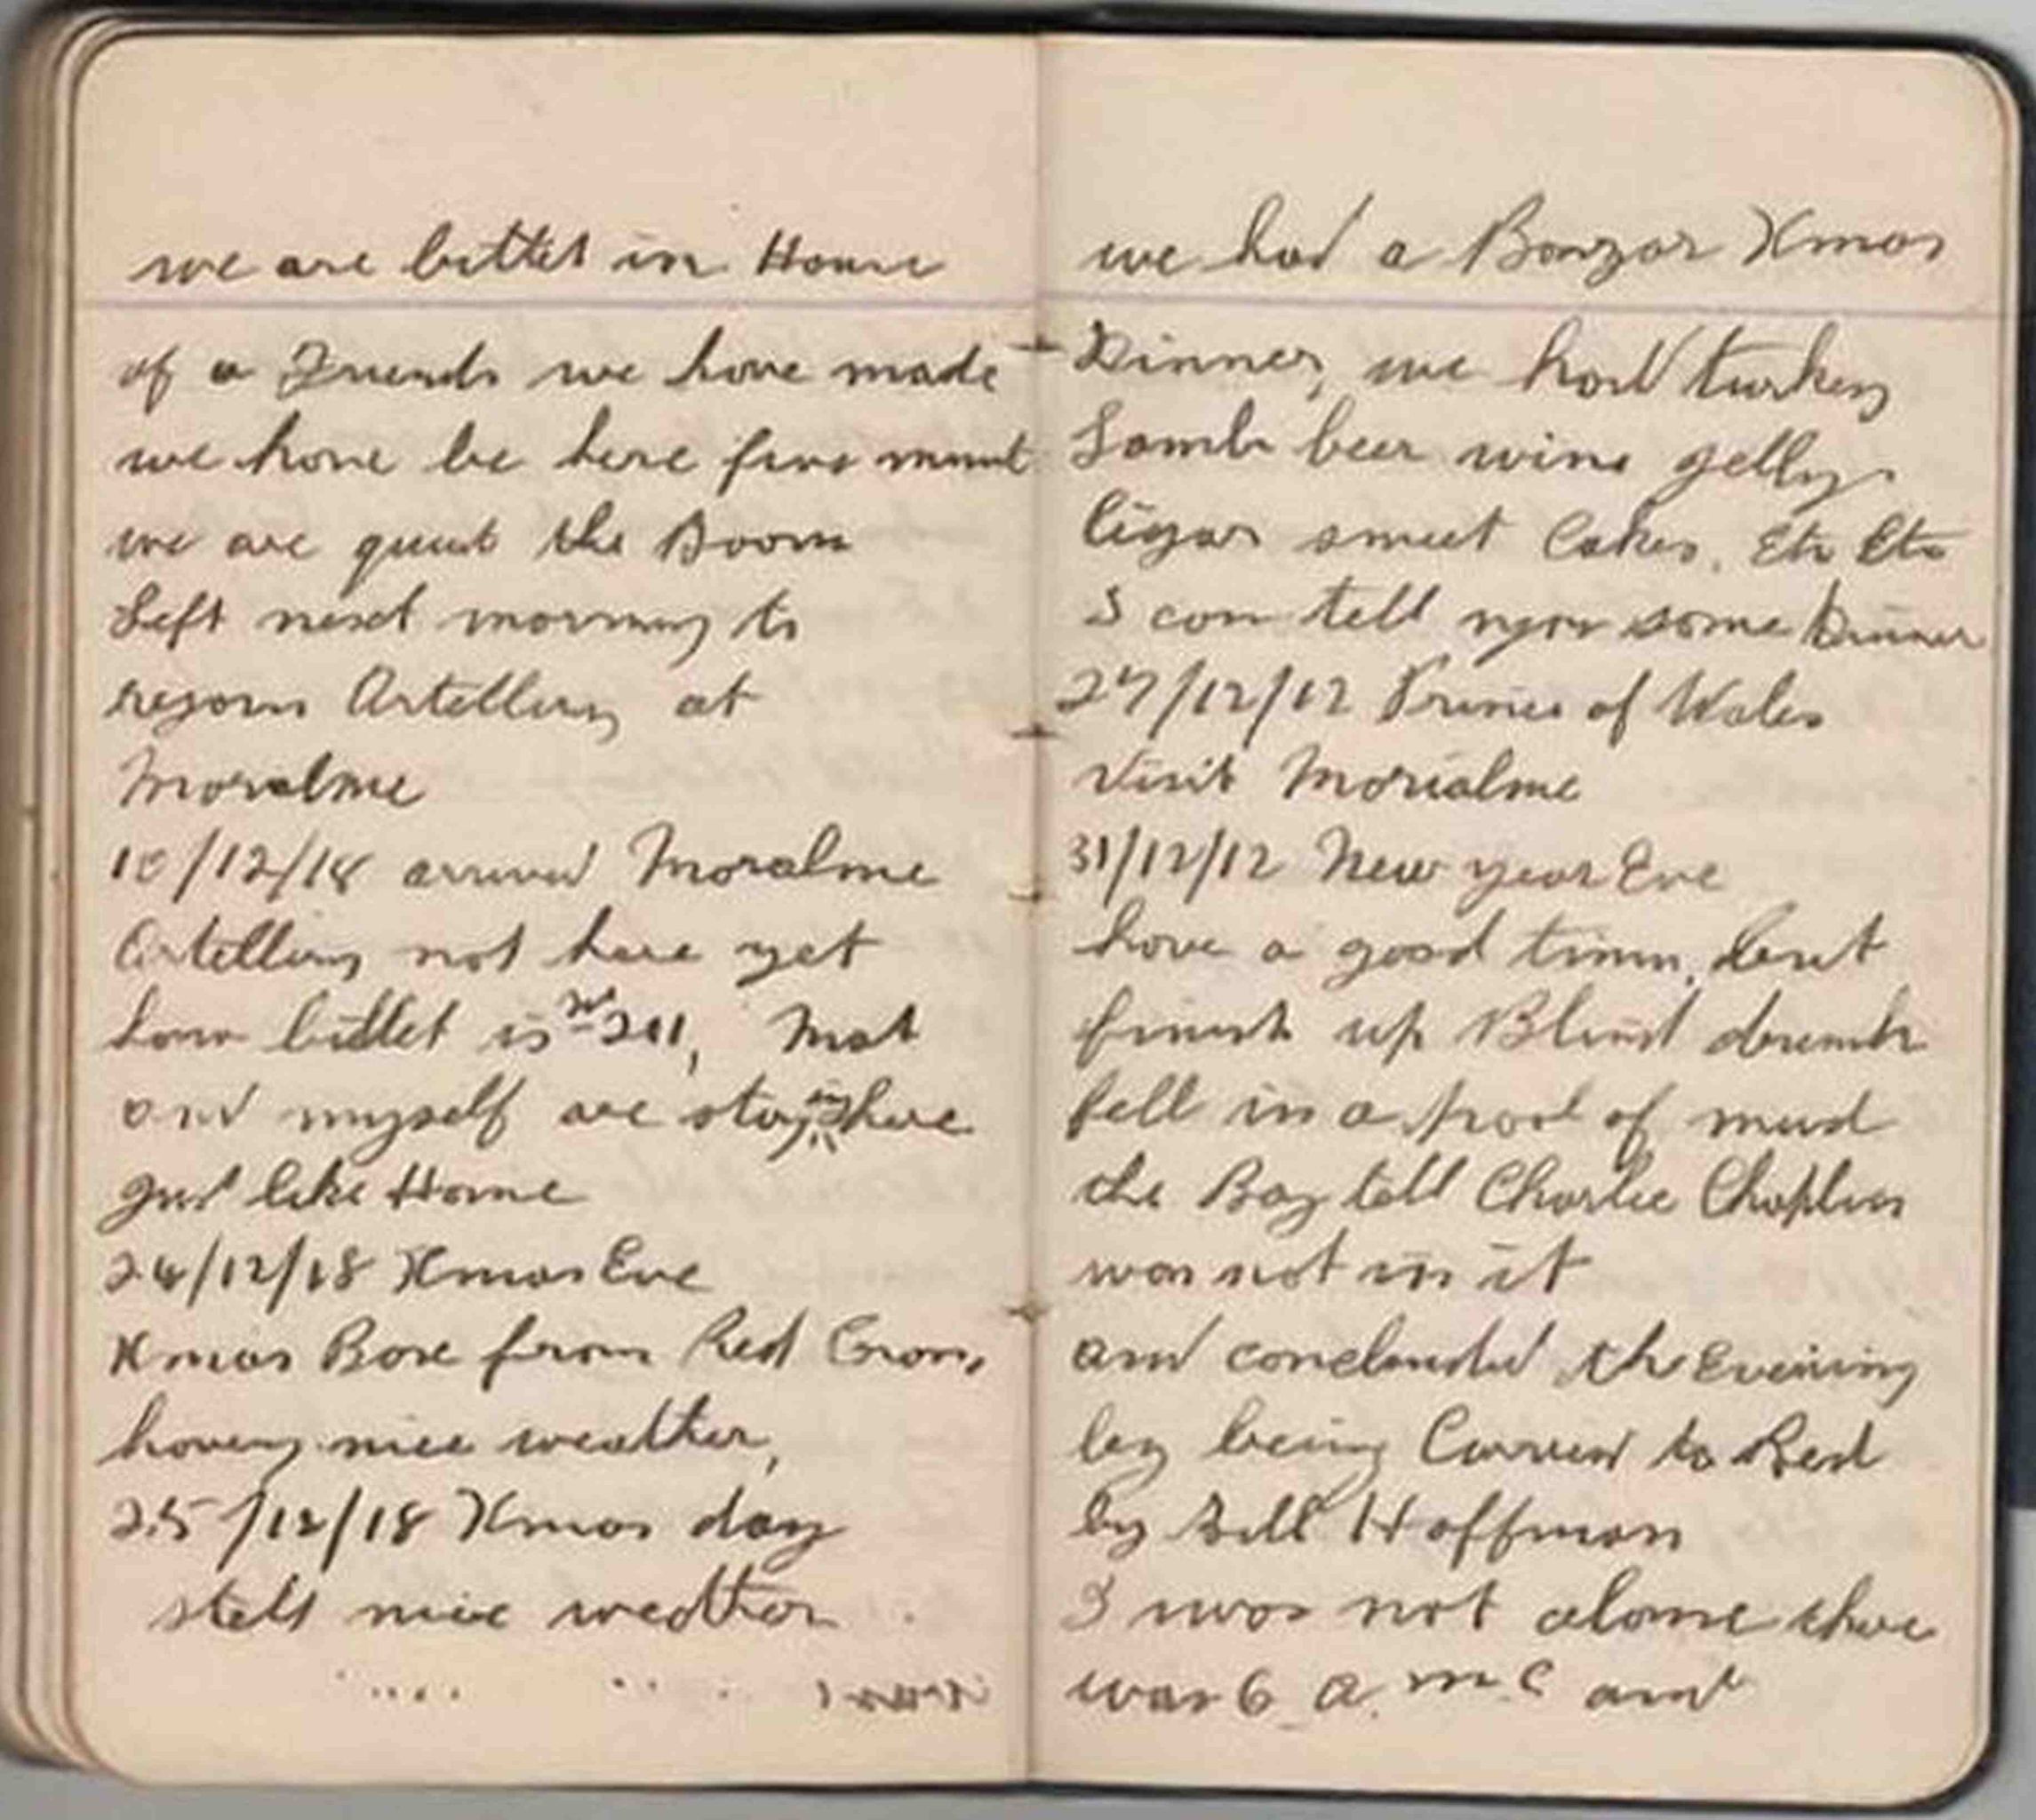 we are bittet in House
of a Friends we have made
we have be here five minut
we are quiet the Boom
Left next morning to
rejorn Artellery at
Moralme
18/12/18 arrived Moralme
Artellery not here yet
hour bittet is No 211, Mat
and myself are staying here
just like Home
24/12/18 Xmas Eve
Xmas Box from Red Cross,
having nice weather,
25/12/18 Xmas day
still nice weather
we had a Bonzar Xmas
Dinner, we had turkey
Lamb beer wine gelly
Cigar sweet Cakes, Etc Etc
I can tell you some Dinner
27/12/12 Prince of Wales
visit Morialme
31/12/12 New year Eve
have a good time, but
finish up Blind drunk
fell in a pool of mud
the Boy tell Charlie Chaplin
was not in it
and concluded the Evening
by being Carried to Bed
by Bill Hoffman
I was not alone there
was 6 A.M.C and